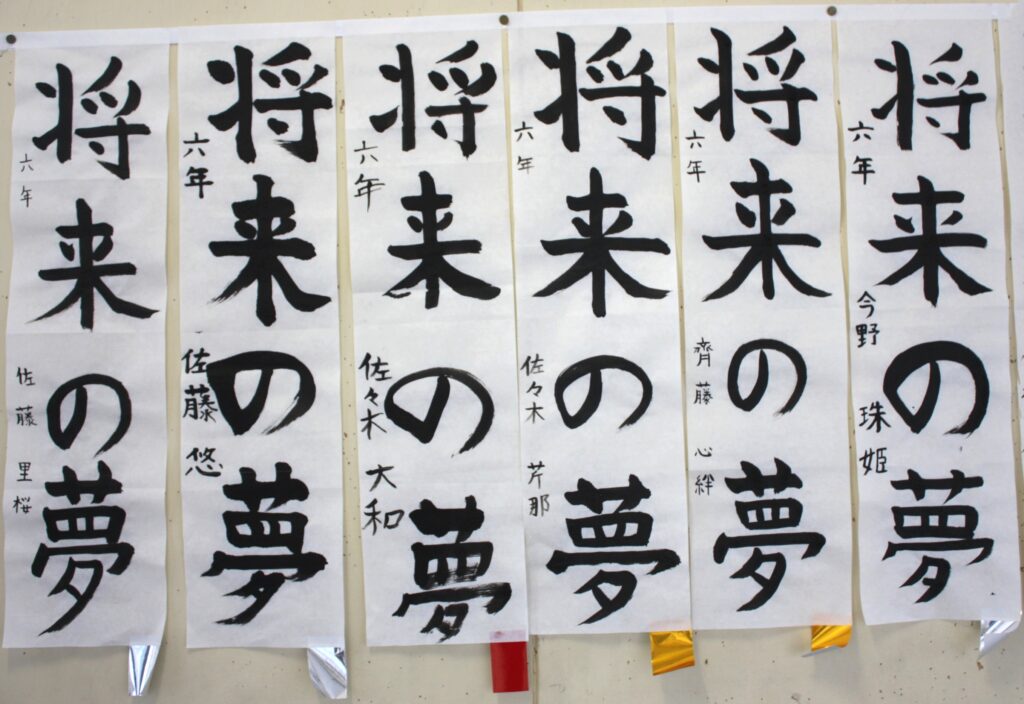 将来の夢
六年 今野 珠姫
将来の夢
六年 齊藤 心絆
将来の夢
六年 佐々木 芹那
将来の夢
六年 佐々木 大和
将来の夢
六年 佐藤 悠
将来の夢
六年 佐藤 里桜